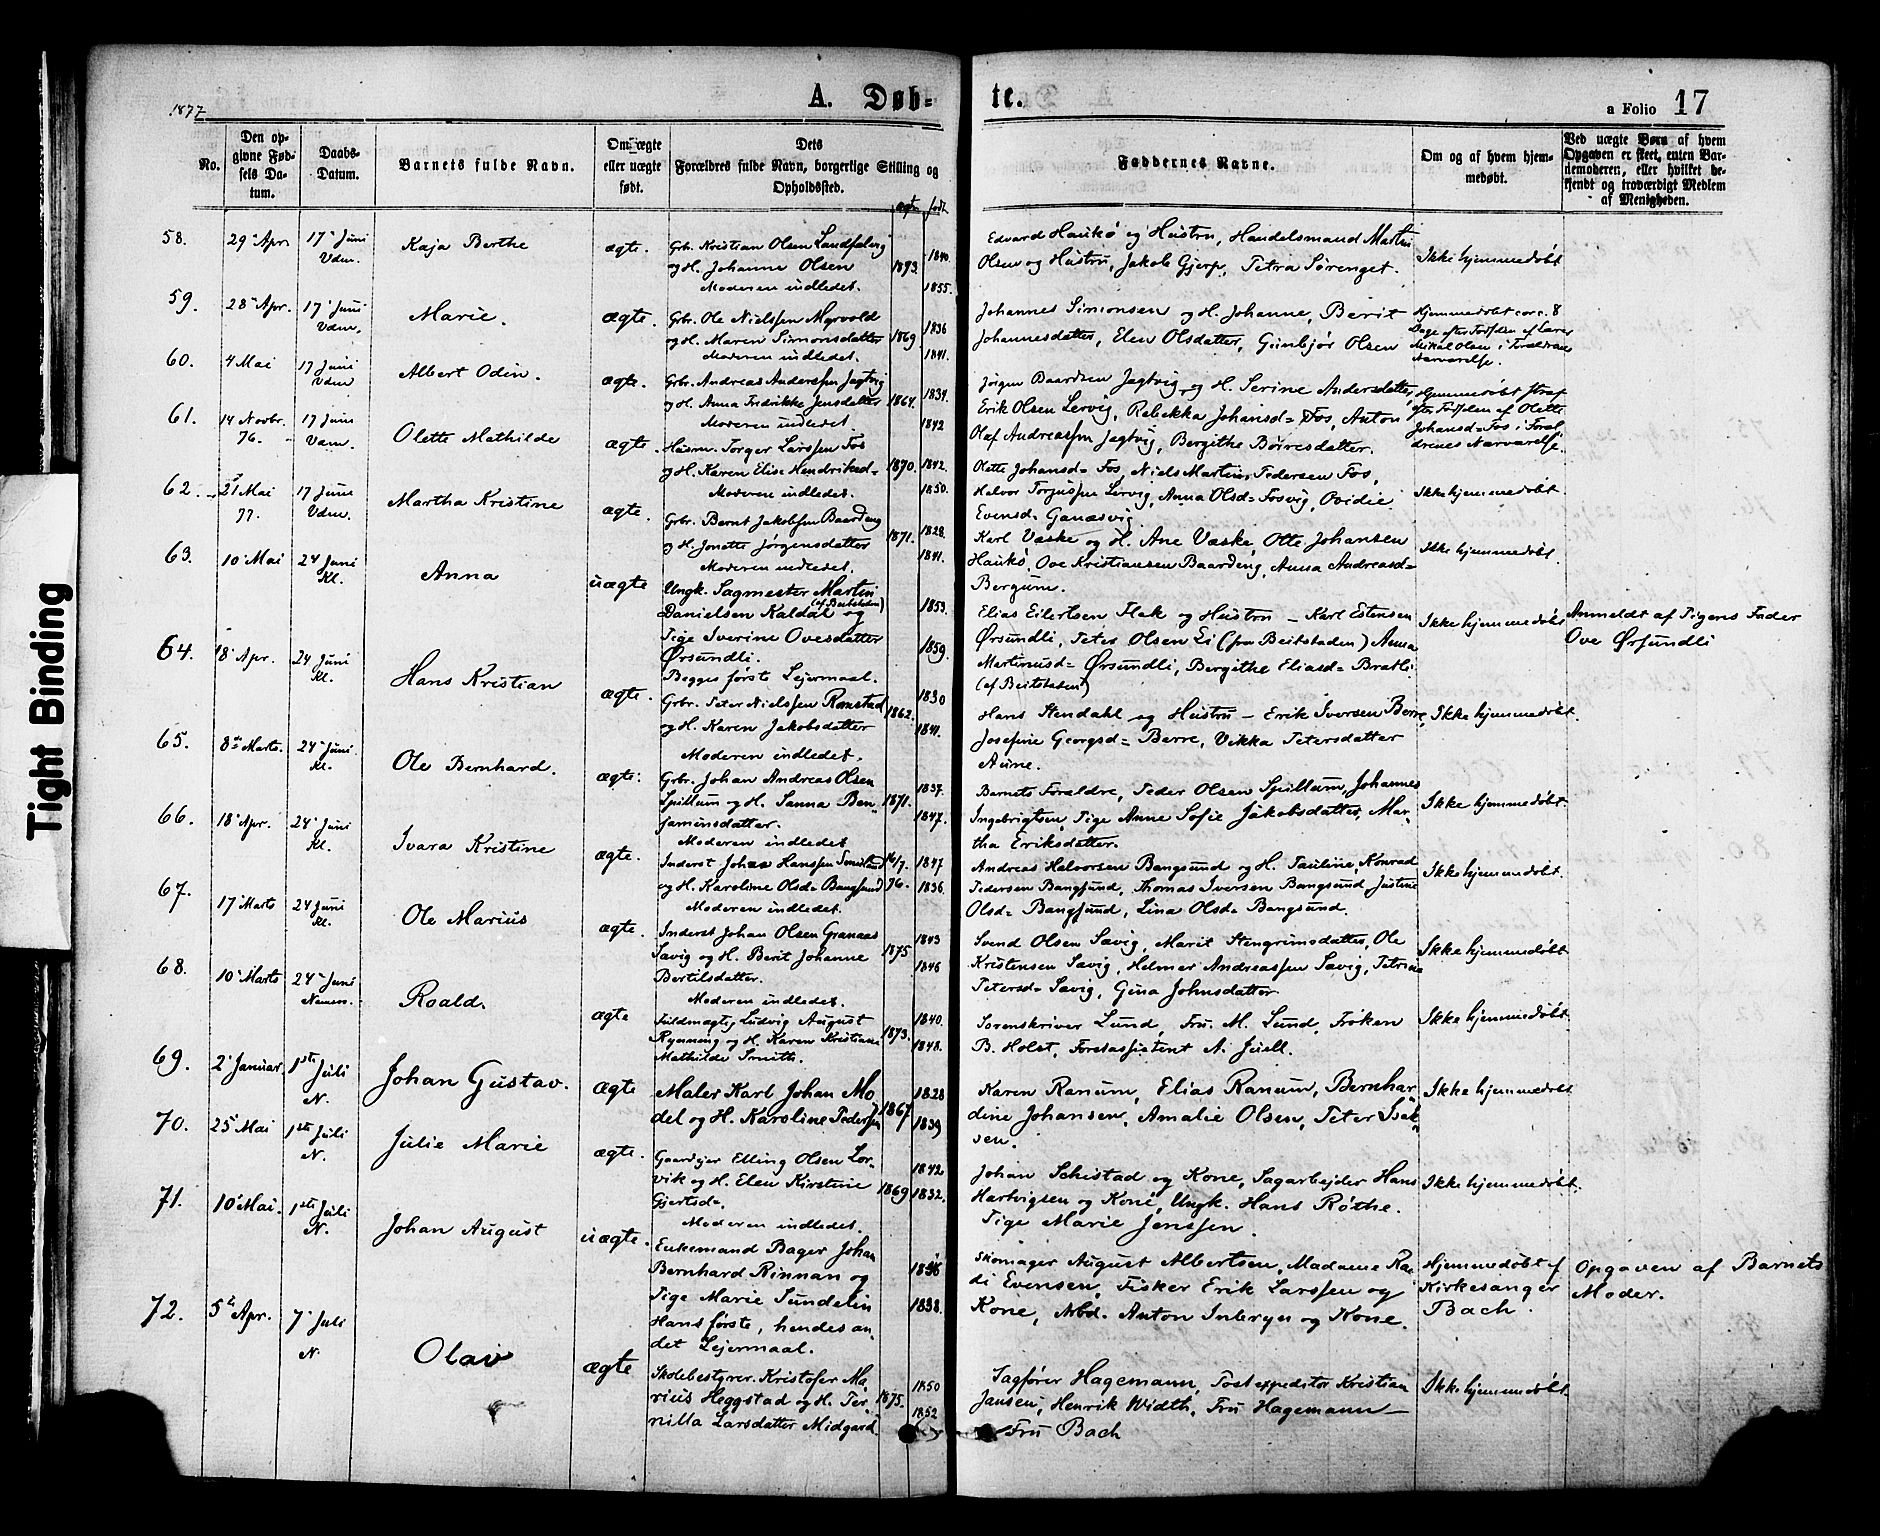 1877
A. Døb-
te.
a Folio 17
No.
Den op-
givne Fød-
sels Da-
tum.
Daabs-
Datum.
Barnets fulde Navn.
Om ægte
eller uægte
født.
Dets
Forældres fulde Navn, borgerlige Stilling og
Opholdssted.
Faddernes Navne.
Om og af hvem hjem-
medøbt.
Ved uægte Børn af hvem
Opgaven er skeet, enten Bar-
nemoderen, eller hvilket be-
kjendt og troværdigt Medlem
af Menigheden.
58. 29 Apr. 17 Juni
Vdm.
Kaja Berthe
ægte.
Grb. Kristian Olsen
og H. Johanne Olsen
Moderen indledet.
1840.
1855.
Edvard Haukø og Hustru, Handelsmand Martin
Olsen og Hustru, Jakob Gjerp, Petra Sørenget.
Ikke hjemmedøbt
59. 28 Apr. 17 Juni
Vdm.
Marie.
ægte.
Grb. Ole Nielssen Myrvold
og H. Maren Simonsdatter
Moderen indledet.
1869.
1836
1841.
Johannes Simonsen og H. Johanne, Berit
Johannesdatter, Elen Olsdatter, Gunbjør Olsen
Hjemmedøbt circ. 8
Dage efter Fødslen af Lærer
Mikal Olsen i Forældrenes
Nærværelse.
60. 4 Mai 17 Juni
Vdm
Albert Odin.
ægte.
Grb. Andreas Anderssen Jagtvig
og H. Anna Fredrikke Jensdatter
Moderen indledet.
1864.
1834.
1842
Jørgen Baardsen Jagtvig og H. Serine Andersdatter,
Erik Olsen Lervig, Rebekka Johansd= Fos, Anton
Olaf Andreassen Jagtvig, Bergithe Børresdatter.
Hjemmedøbt straf
efter Fødslen af Olette
Johansd= Fos i Foræl
drenes Nærværelse.
61. 14 Novbr.
76. 17 Juni
Vdm.
Olette Mathilde
ægte.
Husm. Torger Larssen Fos
og H. Karen Elise Hendriksd=
Moderen indledet.
1870.
1842.
1850.
Olette Johansd= Fos, Niels Martin Pedersen Fos,
Helvor Torjussen Lervig, Anna Olsd= Fosvig, Ovidie
Evensd= Ganæsvig
Ikke hjemmedøbt
62. 21 Mai
77. 17 Juni
Vdm.
Martha Kristine
ægte.
Grb. Bernt Jakobsen Baardeng
og H. Jonette Jørgensdatter
Moderen indledet.
1871.
1828.
1841.
Karl Væske og H. Ane Væske, Otte Johansen
Haukø, Ove Kristiansen Baardeng, Anna Andreasd=
Bergum.
Ikke hjemmedøbt
63. 10 Mai 24 Juni
Kl.
Anna
uægte
Ungk. Sagmester Martin
Danielsen Kaldal (af Beitstaden) og
Pige Iverine Ovesdatter
Ørsundli.
Begges første Lejermaal.
1853.
1859.
Elias Eilertsen Flak og Hustru – Karl Estensen
Ørsundli, Peter Olsen Li (fra Beitstaden) Anna
Martinusd= Ørsundli, Bergithe Eliasd= Bratli
(af Beitstaden)
Ikke hjemmedøbt
Anmeldt af Pigens Fader
Ove Ørsundli
64. 18 Apr. 24 Juni
Kl.
Hans Kristian
ægte.
Grbr. Peter Nielssen Ramstad
og H. Karen Jakobsdatter
Moderen indledet.
1862.
1830
1841.
Hans Stendahl og Hustru – Erik Iversen Berre,
Josefine Georgsd= Berre, Vikka Petersdatter
Aune.
Ikke hjemmedøbt.
65. 8de Marts. 24 Juni
Kl.
Ole Bernhard.
ægte.
Grbr. Johan Andreas Olsen
Spillum og H. Sanna Ben-
jaminsdatter.
Moderen indledet
1871.
1837.
1847.
Barnets Forældre, Peder Olsen Spillum, Johannes
Ingebrigtsen, Pige Anne Sofie Jakobsdatter, Mar-
tha Eriksdatter.
Ikke hjemmedøbt
66. 18 Apr. 24 Juni
Kl.
Ivara Kristine
ægte.
Inderst Johan Hanssen
og H. Karoline Olsd= Bangsund
Moderen indledet.
16/7.
76.
1847
1836.
Andreas Halvorsen Bangsund og H. Pauline, Konrad
Pedersen Bangsund, Thomas Iversen Bangsund, Justine
Olsd= Bangsund, Lina Olsd= Bangsund.
Ikke hjemmedøbt.
67. 17 Marts 24 Juni
Kl.
Ole Marius
ægte.
Inderst Johan Olsen Granaas
Savig og H. Berit Johanne
Bertilsdatter.
Moderen indledet.
1875
1843
1846
Svend Olsen Savig, Marit Stengrimsdatter, Ole
Kristensen Savig, Helmer Andreassen Savig, Petrine
Petersd= Savig, Gina Johnsdatter
Ikke hjemmedøbt
68. 10 Marts 24 Juni
Namsn.
Roald.
ægte
Fuldmægtig Ludvig August
Rynning og H. Karen Kristiane
Mathilde Smith.
1873.
1840.
1848.
Sorenskriver Lund, Fru M. Lund, Frøken
B. Holst, Forstassistent A. Juell.
Ikke hjemmedøbt.
69. 2 Januar. 1ste Juli
N.
Johan Gustav.
ægte
Maler Karl Johan Mo-
del og H. Karoline Pedersen
1867
1828
1839
Karen Ranum, Elias Ranum, Bernhar-
dine Johansen, Amalie Olsen, Peter Isak-
sen.
Ikke hjemmedøbt
70. 25 Mai 1ste Juli
N.
Julie Marie
ægte.
Gaardejer Elling Olsen Lor-
vik og H. Elen Kirstine
Gjertsd=
Moderen indledet.
1869
1842
1832.
Johan Schistad og Kone, Sagarbejder Hans
Hartvigsen og Kone, Ungk. Hans Röthe.
Pige Marie Jenssen.
Ikke hjemmedøbt.
71. 10 Mai. 1ste Juli
N.
Johan August
uægte.
Enkemand Bager Johan
Bernhard Rinnan og
Pige Marie Sundelin
Hans første, hendes an-
det Lejermaal.
1836
1838.
Skomager August Albertsen, Madame Ra-
di Evensen, Fisker Erik Larssen og
Kone, Arbd. Anton Interyn og Kone.
Hjemmedøbt af
Kirkesanger
Bach.
Opgaven af Barnets
Moder.
72. 5te Apr. 7 Juli
N.
Olav
ægte
Skolebestyrer Kristofer Ma-
rius Heggstad og H. Per-
nilla Larsdatter Midgard
1875.
1850
1852
Sagfører Hagemann, Postexpeditør Kristian
Jansen, Henrik Width, Fru Hagemann –
Fru Bach
Ikke hjemmedøbt
Tight Binding